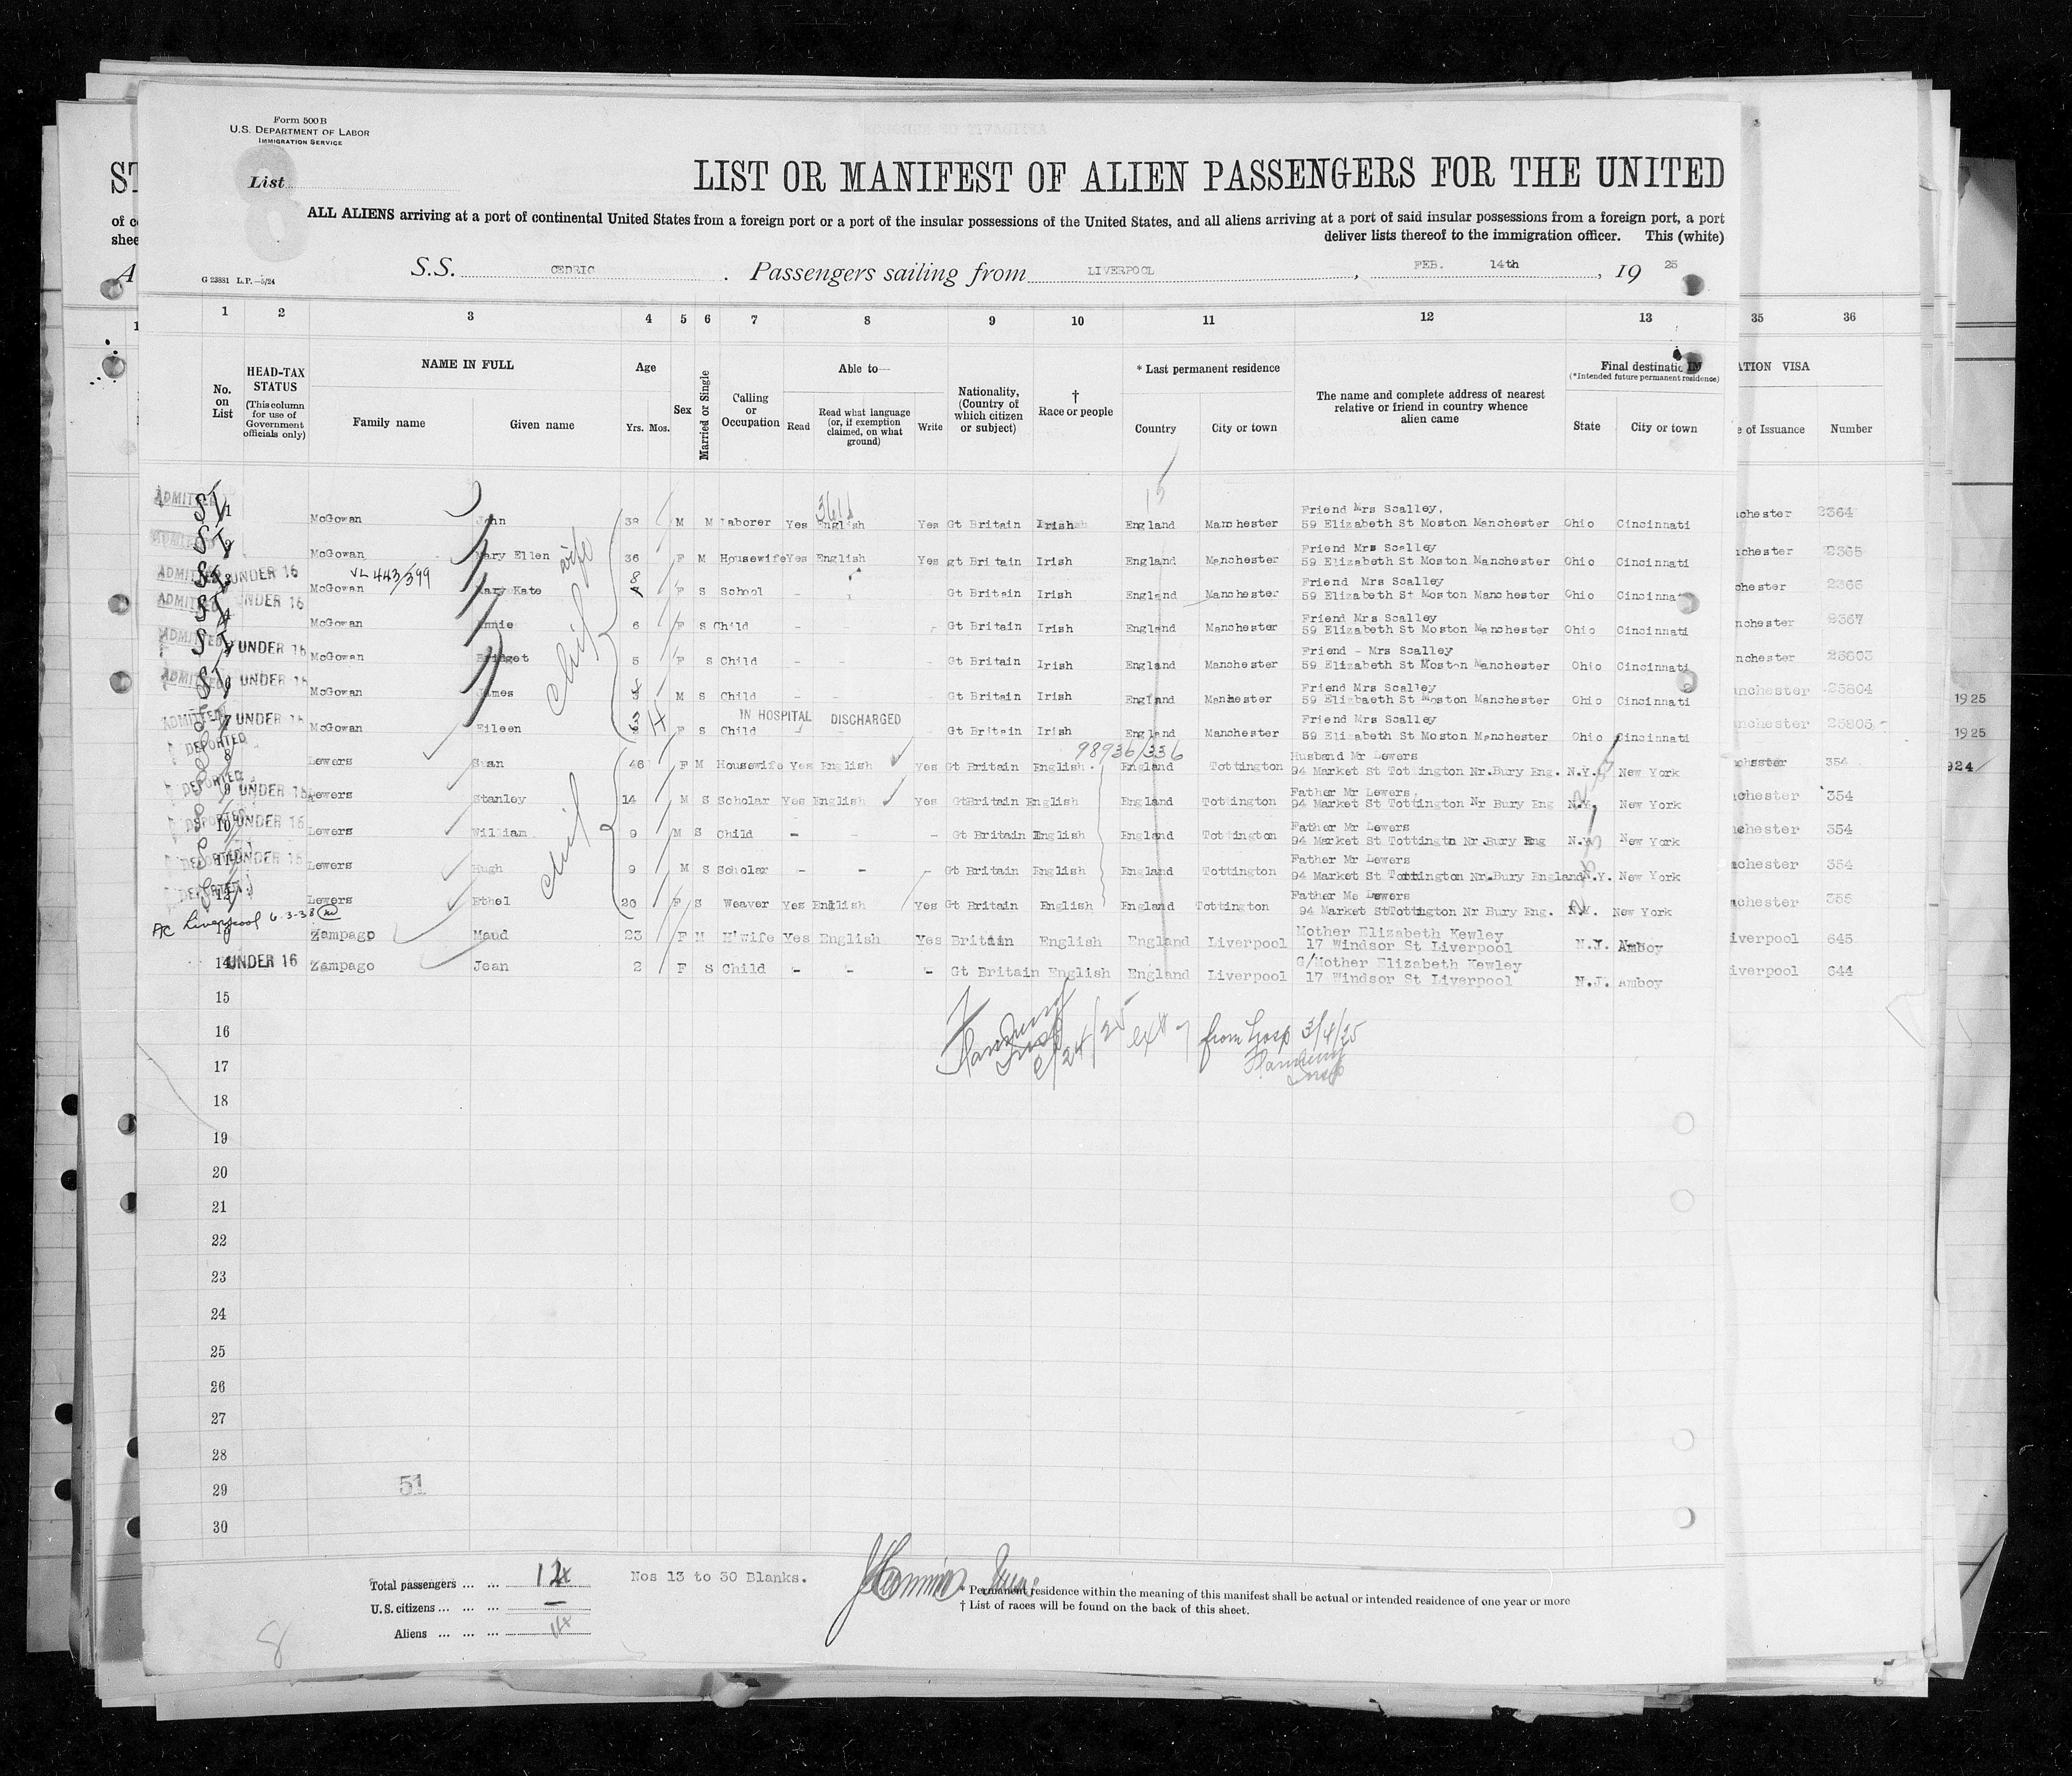 Form 500B
U.S. DEPARTMENT OF LABOR
IMMIGRATION SERVICE
8
List
LIST OR MANIFEST OF ALIEN PASSENGERS FOR THE UNITED
ALL ALIENS arriving at a port of continental United States from a foreign port or a port of the insular possessions of the United States, and all aliens arriving at a port of said insular possessions from a foreign port, a port
deliver lists thereof to the immigration officer. This (white)
S.S. CEDRIC . Passengers sailing from LIVERPOOL , FEB. 14th , 19 25
G 23881 L.P.—5/24
1 2 3 4 5 6 7 8 9 10 11 12 13 35 36
No. on List
HEAD-TAX STATUS (This column for use of Government officials only)
NAME IN FULL
Family name Given name
Age
Yrs. Mos.
Sex
Married or Single
Calling or Occupation
Able to—
Read Read what language (or, if exemption claimed, on what ground) Write
Nationality, (Country of which citizen or subject)
† Race or people
* Last permanent residence
Country City or town
The name and complete address of nearest relative or friend in country whence alien came
Final destinatio
(*Intended future permanent residence)
State City or town
ATION VISA
e of Issuance Number
Friend Mrs Scalley,
ADMITTED 1 McGowan John 38 M M Laborer Yes English Yes Gt Britain Irish England Manchester 59 Elizabeth St Moston Manchester Ohio Cincinnati chester 2364
Friend Mrs Scalley
ADMITTED 2 McGowan Mary Ellen wife 36 F M Housewife Yes English Yes gt Britain Irish England Manchester 59 Elizabeth St Moston Manchester Ohio Cincinnati chester 2365
VL 443/399
Friend Mrs Scalley
ADMITTED 3 UNDER 16 McGowan Mary Kate 8 F S School - Gt Britain Irish England Manchester 59 Elizabeth St Moston Manchester Ohio Cincinnat chester 2366
Friend Mrs Scalley
ADMITTED 4 UNDER 16 McGowan Annie 6 F S Child - - - Gt Britain Irish England Manchester 59 Elizabeth St Moston Manchester Ohio Cincinnati chester 2367
Friend - Mrs Scalley
ADMITTED UNDER 16 McGowan Bridget 5 F S Child - - - Gt Britain Irish England Manchester 59 Elizabeth St Moston Manchester Ohio Cincinnati nchester 25803
Friend Mrs Scalley
ADMITTED 6 UNDER 16 McGowan James M S Child - - - Gt Britain Irish England Manhester 59 Elizbaeth St Moston Manchester Ohio Cincinnati anchester 25804
IN HOSPITAL DISCHARGED
Friend Mrs Scalley
ADMITTED 7 UNDER 16 McGowan Eileen F S Child - - - Gt Britain Irish England Manchester 59 Elizabeth St Moston Manchester Ohio Cincinnati anchester 25805
98936/336
Husband Mr Lewers
DEPORTED 8 Lewers Susan 46 F M Housewife Yes English Yes Gt Britain English England Tottington 94 Market St Tottington Nr.Bury Eng. N.Y. New York 354
Father Mr Lewers,
DEPORTED 9 UNDER 16 Lewers Stanley 14 M S Scholar Yes English Yes GtBritain English England Tottington 94 Market St Tottington Nr Bury Eng N.Y. New York chester 354
Father Mr Lewers
DEPORTED 10 UNDER 16 Lewers William 9 M S Child - - - Gt Britain English England Tottington 94 Market St Tottington Nr Bury Eng N.Y. New York chester 354
Father Mr Lewers
DEPORTED 11 UNDER 16 Lewers Hugh 9 M S Scholar - - - Gt Britain English England Tottington 94 Market St Tottington Nr.Bury England N.Y. New York chester 354
Father Me Lewers
DEPORTED 12 Lewers Ethel 20 F S Weaver Yes English Yes Gt Britain English England Tottington 94 Market StTottington Nr Bury Eng. N.Y. New York chester 355
Liverpool 6-3-38
Mother Elizabeth Kewley
13 Zampago Maud 23 F M H'wife Yes English Yes Britain English England Liverpool 17 Windsor St Liverpool N.J. Amboy iverpool 645
G/Mother Elizabeth Kewley
14 UNDER 16 Zampago Jean 2 F S Child - - - Gt Britain English England Liverpool 17 Windsor St Liverpool N.J. Amboy iverpool 644
1925
1925
924
15
16
from hosp 3/4/25
17
18
19
20
21
22
23
24
25
26
27
28
29 51
30
Total passengers ... ... Nos 13 to 30 Blanks.
U.S. citizens ... ... ... —
Aliens ... ... ...
* Permanent residence within the meaning of this manifest shall be actual or intended residence of one year or more
† List of races will be found on the back of this sheet.
8